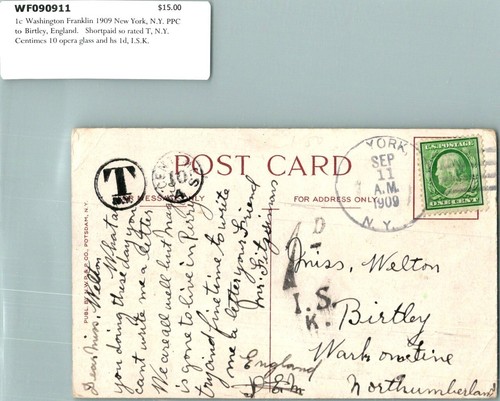 WF090911 $15.00
1c Washington Franklin 1909 New York, N.Y. PPC
to Birtley, England. Shortpaid so rated T, N.Y.
Centimes 10 opera glass and hs 1d, I.S.K.
POST CARD
FOR ADDRESS ONLY
T
YORK,
SEP
11
A.M.
1909
N.Y.
ONE CENT
D
I.S.
K.
Miss, Welton
Birtley
Wark on Tine
Northumberland
England
Dear Miss, Welton
you doing these days you
cant write me a letter.
We are all well but
is gone to live in
and fine time to write
me a letter your Friend
Mr. Fitzsimmons